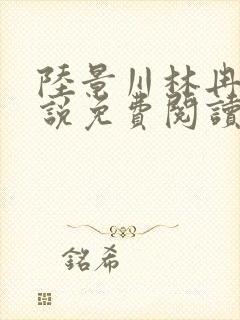 陸景川林冉
說免費閱讀
銘希